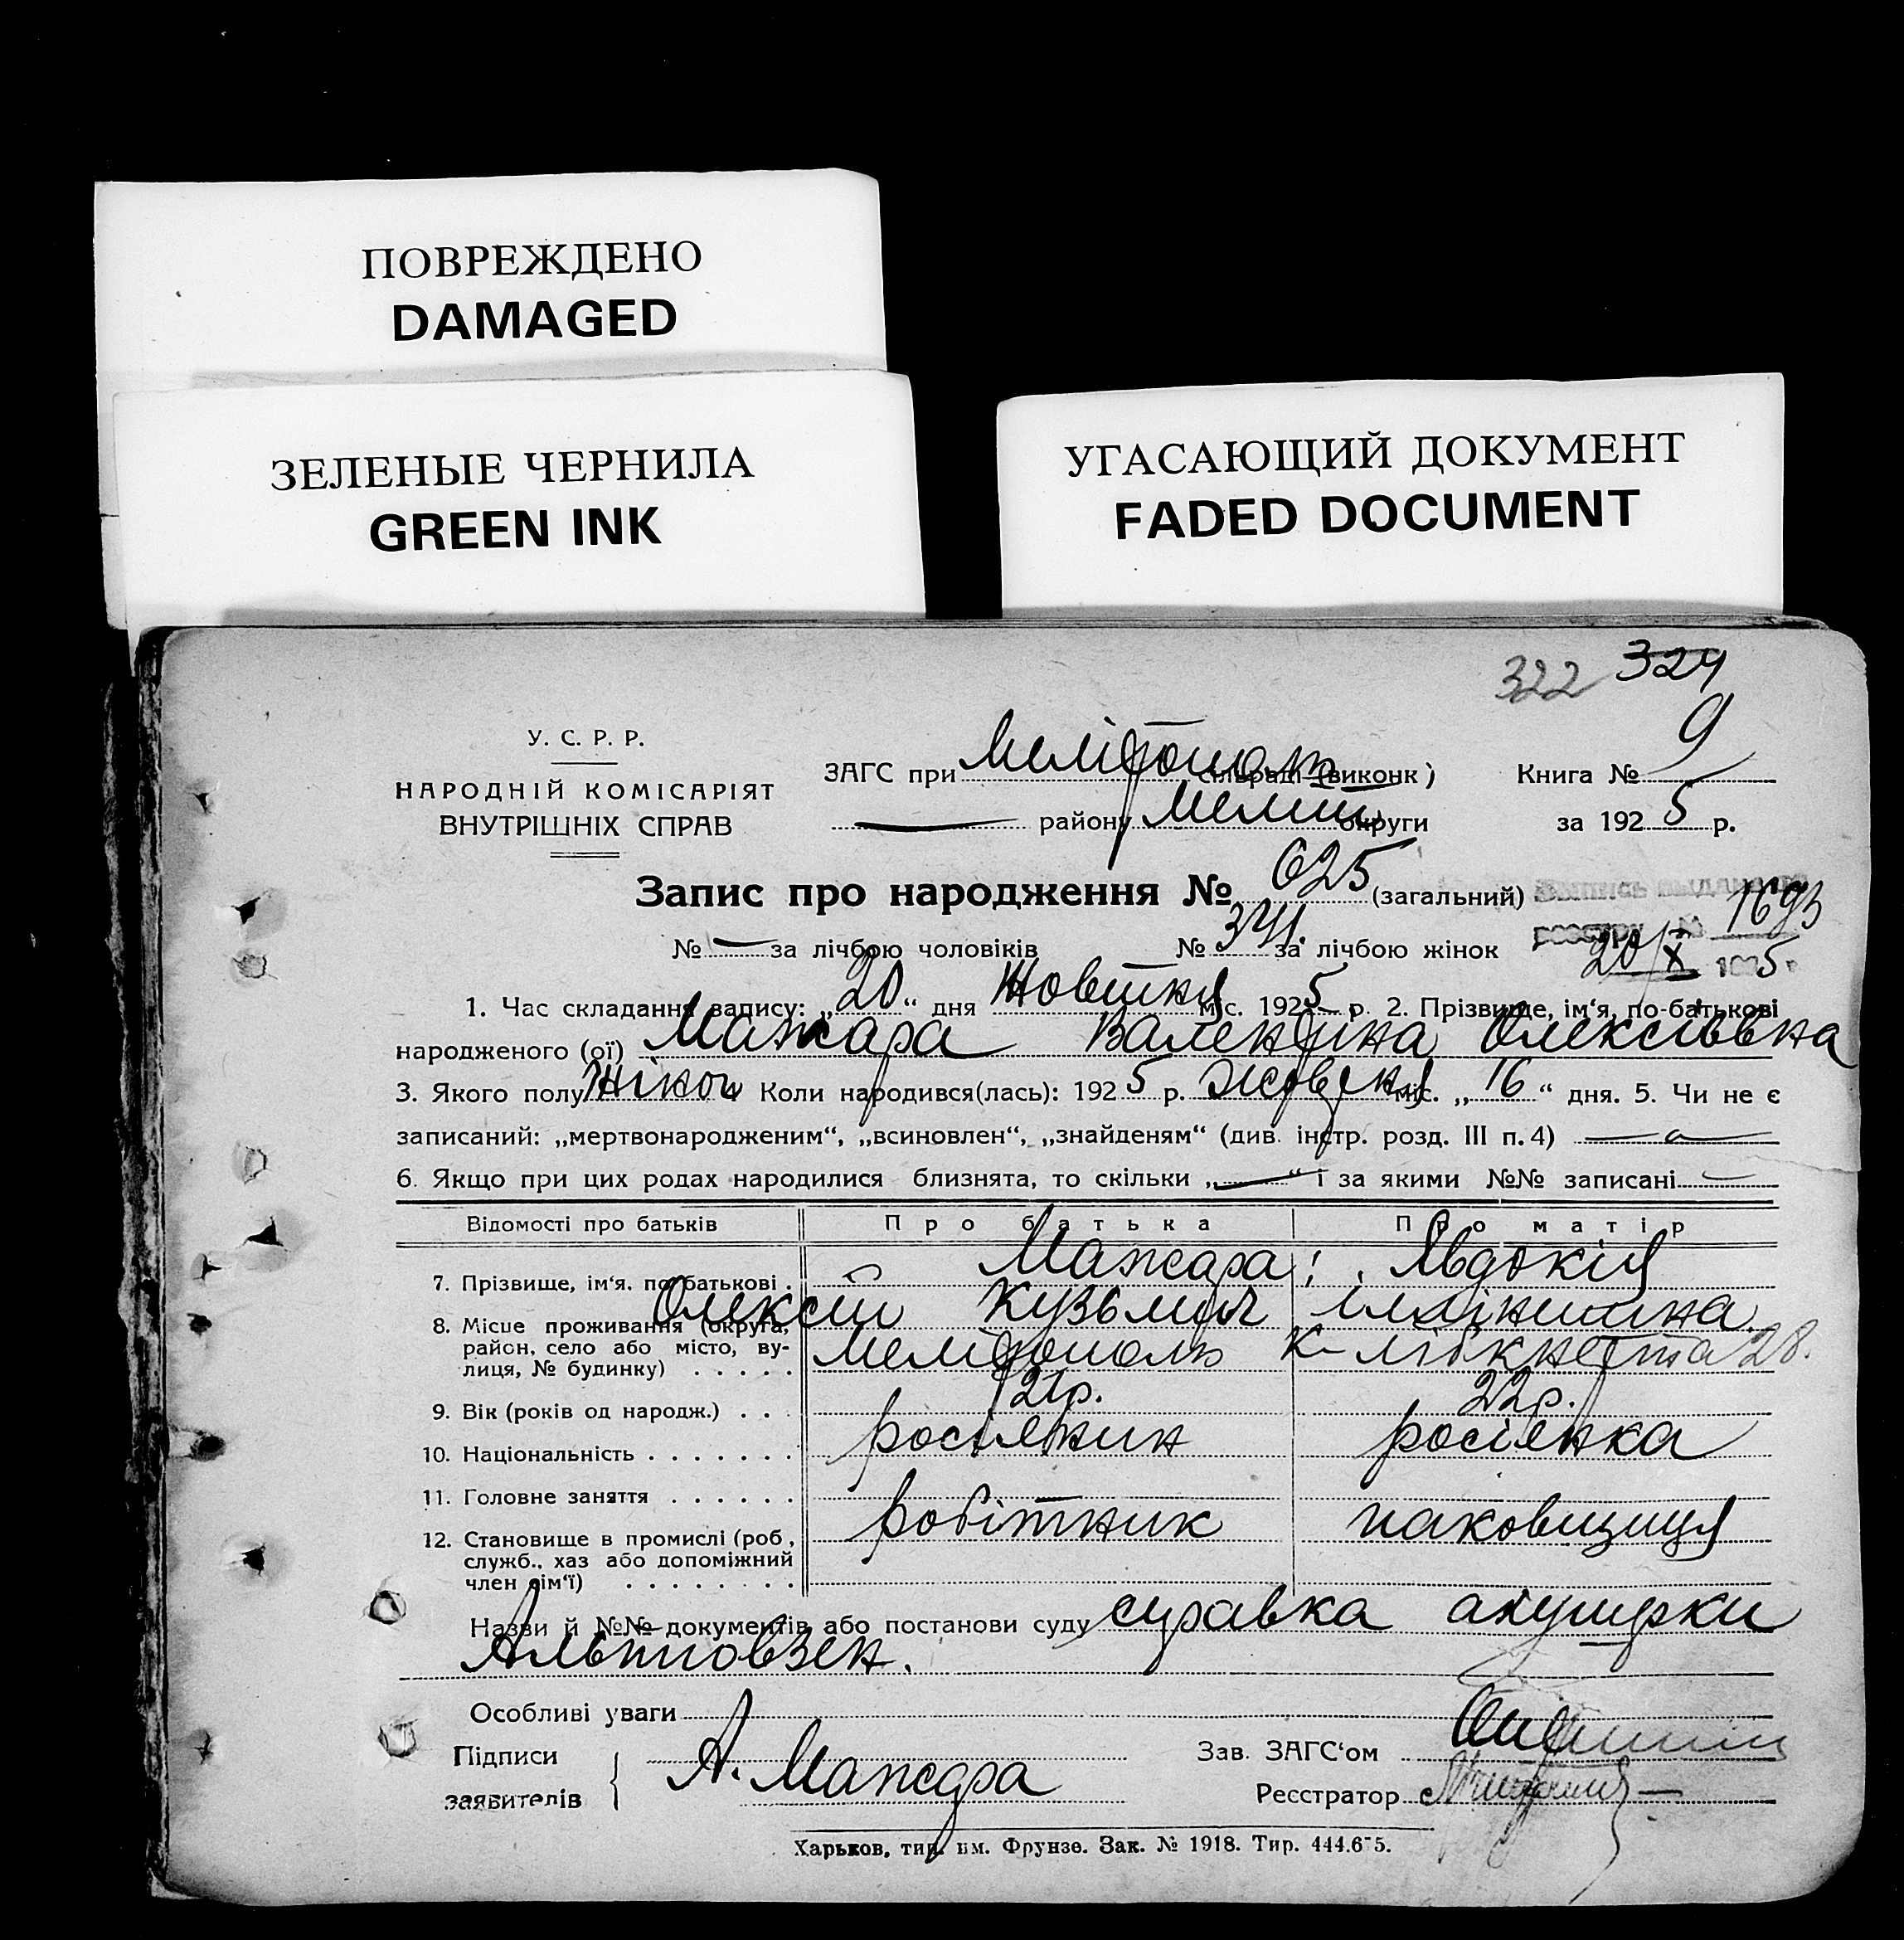 ПОВРЕЖДЕНО
DAMAGED
ЗЕЛЕНЫЕ ЧЕРНИЛА
GREEN INK
УГАСАЮЩИЙ ДОКУМЕНТ
FADED DOCUMENT
322 324
У. С. Р. Р.
НАРОДНІЙ КОМІСАРІЯТ
ВНУТРІШНІХ СПРАВ
ЗАГС при Мелітополь сільраді (виконк)
району Меліт. округи
Книга № 9
за 1925 р.
Запис про народження № 625 (загальний)
Запись выдана по
реестру № 1693
20/X 1925 г
№ — за лічбою чоловіків № 341. за лічбою жінок
1. Час складання запису: „20“ дня Жовтня міс. 1925 р. 2. Прізвище, ім‘я, по-батькові
народженого (ої) Мажара Валентина Олексіївна
3. Якого полу Жіноч. Коли народився(лась): 1925 р. жовтня міс. „16“ дня. 5. Чи не є
записаний: „мертвонародженим“, „всиновлен“, „знайденям“ (див. інстр. розд. III п. 4) —
6. Якщо при цих родах народилися близнята, то скільки „—“ і за якими №№ записані —
Відомості про батьків Про батька Про матір
7. Прізвище, ім‘я. по батькові . Мажара Олексій Кузьмич Явдокія
8. Місце проживання (округа, район, село або місто, вулиця, № будинку) . . . . . Мелітополь К-Лібкнехта 28.
9. Вік (років од народж.) . . . 21р. 22р.
10. Національність . . . . . . . росіянин росіянка
11. Головне заняття . . . . . .
12. Становище в промислі (роб., служб., хаз або допоміжний член сім‘ї) . . . . . . . . робітник
Назви й №№ документів або постанови суду справка акушерки
Особливі уваги
Підписи
заявителів { А. Мажара
Зав. ЗАГС‘ом
Реєстратор
Харьков, тип. им. Фрунзе. Зак. № 1918. Тир. 444.675.